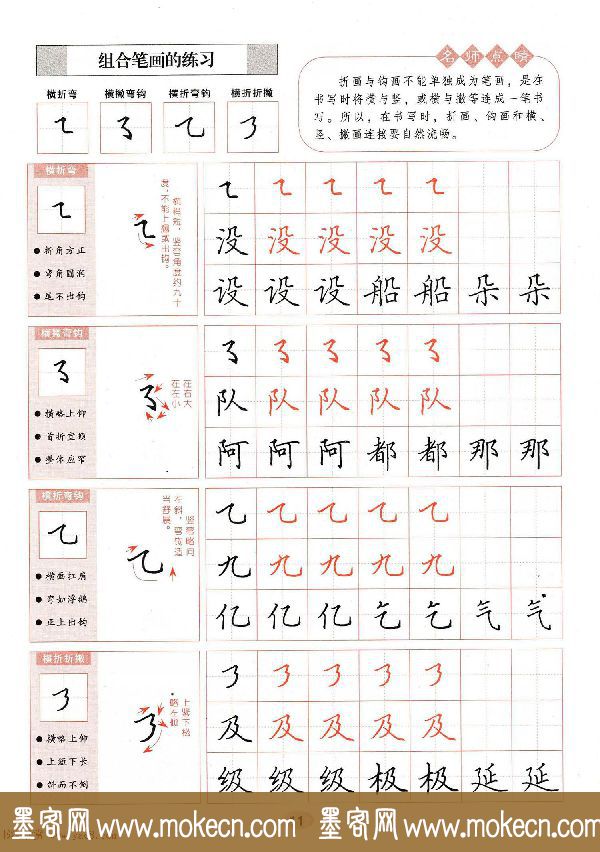 组合笔画的练习
名师点睛
折画与钩画不能单独成为笔画，是在
书写时将横与竖，或横与撇等连成一笔书
写。所以，在书写时，折画、钩画和横、
竖、撇画连接要自然流畅。
横折弯 横撇弯钩 横折弯钩 横折折撇
横折弯
● 折角方正
● 弯角圆润
● 尾不出钩
度，不能上翘或出钩。
没 没 没 没 没
设 设 设 船 船 朵 朵
横撇弯钩
● 横略上仰
● 首折宜顿
● 整体应窄
在右大
在左小
队 队 队 队 队
阿 阿 阿 都 都 那 那
横折弯钩
● 横画扛肩
● 弯如浮鹅
● 正上出钩
竖弯略向
左斜，弯度适
当舒展。
乙 乙 乙 乙 乙
九 九 九 九 九
亿 亿 亿 乞 乞 气 气
横折折撇
● 横略上仰
● 上短下长
上紧下松
及 及 及 及 及
级 级 级 极 极 延 延
墨客网 www.mokecn.com 墨客网 www.mokecn.com